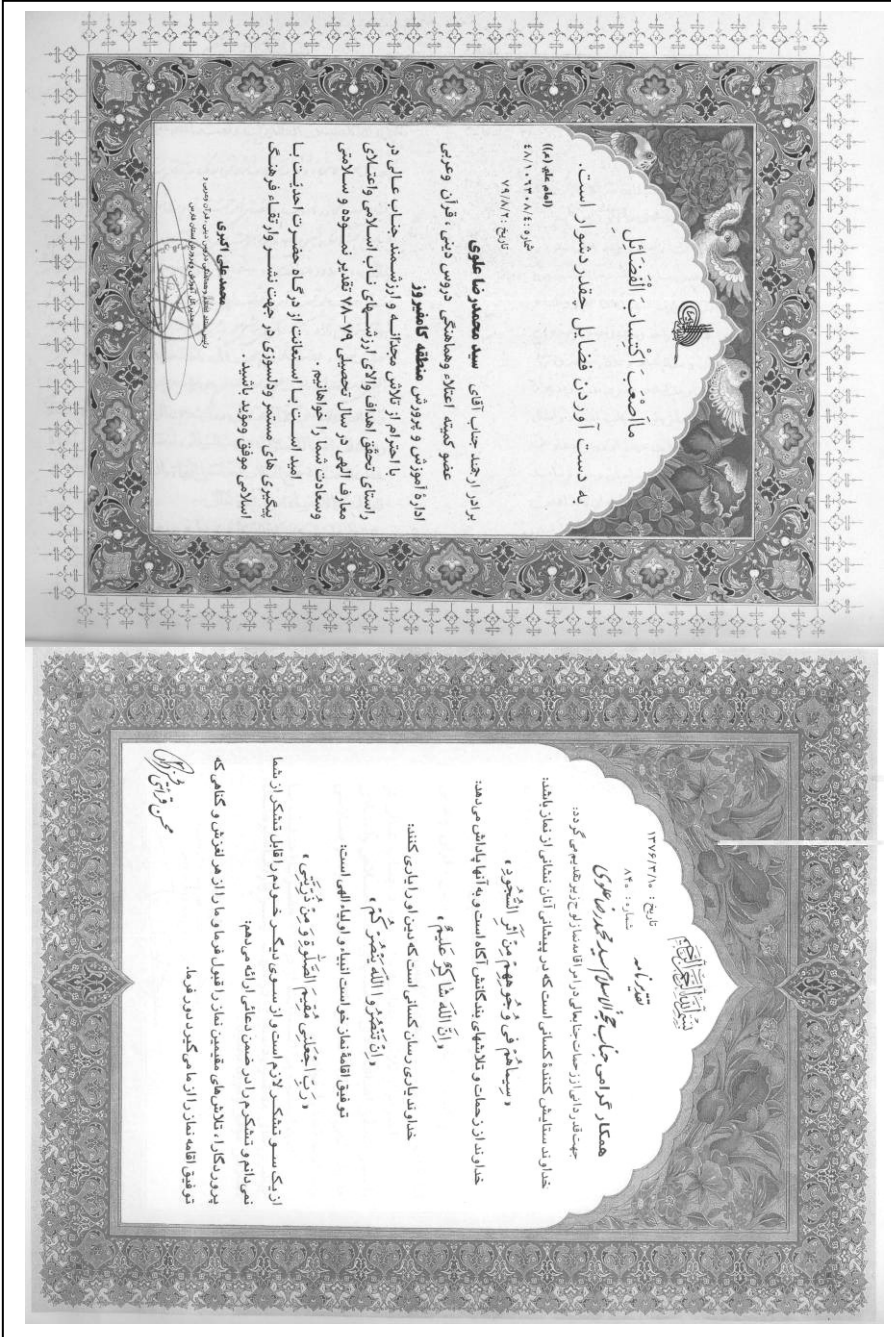 مااَصْعَبَ اکْتِسابَ الْفَضائِلِ
به دست آوردن فضایل چقدر دشوار است.
(امام علی (ع))
شماره: ۴۸/۱۰۶۳۰۸/٤
تاریخ: ۷۹/۸/۲
برادر ارجمند جناب آقای سید محمدرضا علوی
عضو کمیته اعتلاء وهماهنگی دروس دینی، قرآن وعربی
ادارهٔ آموزش و پرورش منطقه کامفیروز
با احترام از تلاش مجدّانـه و ارزشـمند جنـاب عـالی در
راستای تحقّق اهداف والای ارزشـهای نـاب اسـلامی واعتـلای
معارف الهی در سال تحصیلی ۷۹-۷۸ تقدیر نمـوده و سـلامتی
وسعادت شما را خواهانیم.
امید اسـت بـا اسـتعانت از درگـاه حضـرت احدیّـت بـا
پیگیری های مستمر ودلسوزی در جهت نشـر وارتقـاء فرهنـگ
اسلامی موفق ومؤید باشید.
محمد علی اکبری
بسم الله الرحمن الرحیم
تاریخ: ۱۳۷۶/۳/۱۰
شماره: ۸۴۰
تقدیرنامه
همکار گرامی جناب حجةالاسلام سید محمدرضا علوی
جهت قدردانی از زحمات جنابعالی در امر اقامه نماز لوح زیر تقدیم می گردد:
خداوند ستایش کنندهٔ کسانی است که در پیشانی آنان نشانی از نماز باشد:
«سِیماهُمْ فی وُجوُهِهِمْ مِنْ اَثَرِ السُّجُودِ»
خداوند از زحمات و تلاشهای بندگانش آگاه است و به آنها پاداش می‌دهد:
«اِنَّ اللهَ شاکِرٌ عَلیمٌ»
خداوند یاری رسان کسانی است که دین او را یاری کنند:
«اِنْ تَنْصُرُوا اللهَ یَنْصُرْکُمْ»
توفیق اقامهٔ نماز خواست انبیاء و اولیاء الهی است:
«رَبِّ اجْعَلْنی مُقیمَ الصَّلوةِ وَ مِنْ ذُرِّیَّتی»
از یک سـو تـشکـر لازم است و از سـوی دیگـر خـودم را قابل تـشکر از شما
نمی‌دانم و تشکرم را در ضمن دعائی ارائه می‌دهم:
پروردگارا، تلاش‌های مقیمین نماز را قبول فرما و ما را از هر لغزش و گناهی که
توفیق اقامه نماز را از ما می‌گیرد دور فرما.
محسن قرائتی